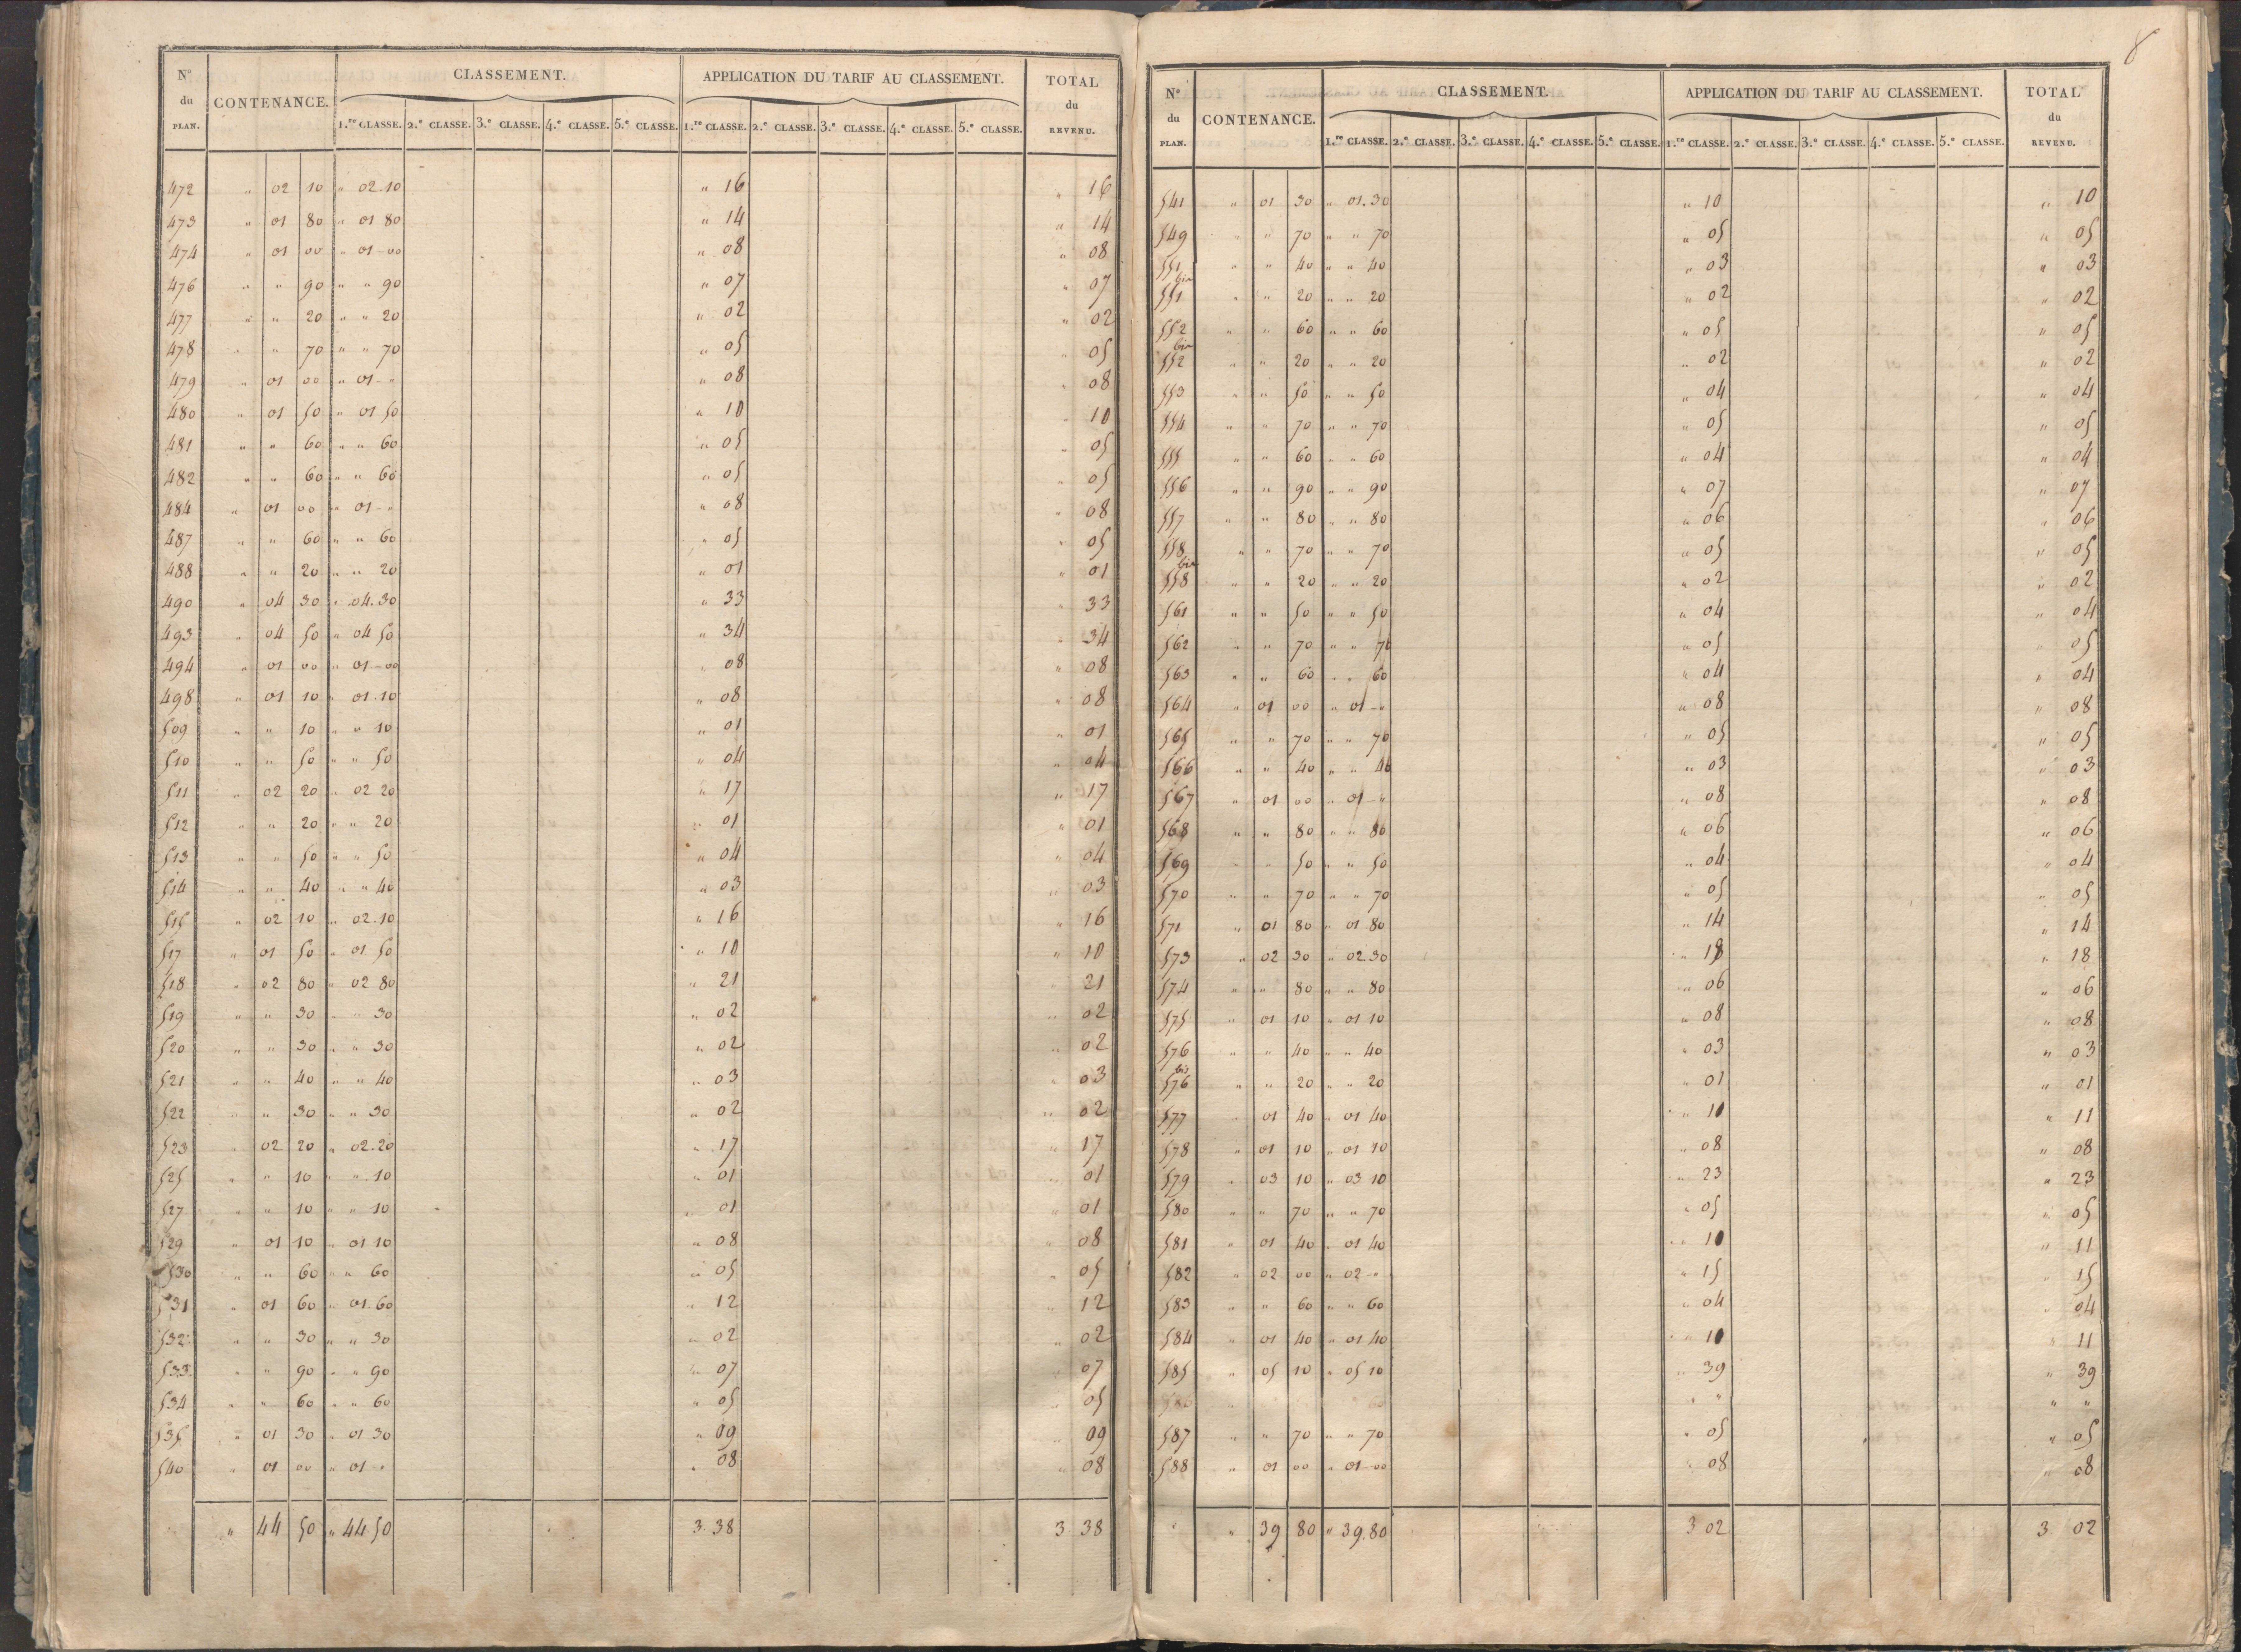 N.º du PLAN. CONTENANCE. CLASSEMENT. APPLICATION DU TARIF AU CLASSEMENT. TOTAL du REVENU.
1.re CLASSE. 2.e CLASSE. 3.e CLASSE. 4.e CLASSE. 5.e CLASSE. 1.re CLASSE. 2.e CLASSE. 3.e CLASSE. 4.e CLASSE. 5.e CLASSE.
472 " 02 10 " 02.10 " 16 " 16
473 " 01 80 " 01 80 " 14 " 14
474 " 01 00 " 01-00 " 08 " 08
476 " " 90 " " 90 " 07 " 07
477 " " 20 " " 20 " 02 " 02
478 " " 70 " " 70 " 05 " 05
479 " 01 00 " 01-" " 08 " 08
480 " 01 50 " 01 50 " 10 " 10
481 " " 60 " " 60 " 05 " 05
482 " " 60 " " 60 " 05 " 05
484 " 01 00 " 01-" " 08 " 08
487 " " 60 " " 60 " 05 " 05
488 " " 20 " " 20 " 01 " 01
490 " 04 30 " 04.30 " 33 " 33
493 " 04 50 " 04 50 " 34 " 34
494 " 01 00 " 01-00 " 08 " 08
498 " 01 10 " 01.10 " 08 " 08
509 " " 10 " " 10 " 01 " 01
510 " " 50 " " 50 " 04 " 04
511 " 02 20 " 02 20 " 17 " 17
512 " " 20 " " 20 " 01 " 01
513 " " 50 " " 50 " 04 " 04
514 " " 40 " " 40 " 03 " 03
515 " 02 10 " 02.10 " 16 " 16
517 " 01 50 " 01 50 " 10 " 10
518 " 02 80 " 02 80 " 21 " 21
519 " " 30 " " 30 " 02 " 02
520 " " 30 " " 30 " 02 " 02
521 " " 40 " " 40 " 03 " 03
522 " " 30 " " 30 " 02 " 02
523 " 02 20 " 02.20 " 17 " 17
525 " " 10 " " 10 " 01 " 01
527 " " 10 " " 10 " 01 " 01
529 " 01 10 " 01 10 " 08 " 08
530 " " 60 " " 60 " 05 " 05
531 " 01 60 " 01.60 " 12 " 12
532 " " 30 " " 30 " 02 " 02
533 " " 90 " " 90 " 07 " 07
534 " " 60 " " 60 " 05 " 05
535 " 01 30 " 01 30 " 09 " 09
540 " 01 00 " 01 " " 08 " 08
" 44 50 " 44.50 3.38 3 38
8
N.º du PLAN. CONTENANCE. CLASSEMENT. APPLICATION DU TARIF AU CLASSEMENT. TOTAL du REVENU.
1.re CLASSE. 2.e CLASSE. 3.e CLASSE. 4.e CLASSE. 5.e CLASSE. 1.re CLASSE. 2.e CLASSE. 3.e CLASSE. 4.e CLASSE. 5.e CLASSE.
541 " 01 30 " 01.30 " 10 " 10
549 " " 70 " " 70 " 05 " 05
551 " " 40 " " 40 " 03 " 03
551 bis " " 20 " " 20 " 02 " 02
552 " " 60 " " 60 " 05 " 05
552 bis " " 20 " " 20 " 02 " 02
553 " " 50 " " 50 " 04 " 04
554 " " 70 " " 70 " 05 " 05
555 " " 60 " " 60 " 04 " 04
556 " " 90 " " 90 " 07 " 07
557 " " 80 " " 80 " 06 " 06
558 " " 70 " " 70 " 05 " 05
558 bis " " 20 " " 20 " 02 " 02
561 " " 50 " " 50 " 04 " 04
562 " " 70 " " 70 " 05 " 05
563 " " 60 " " 60 " 04 " 04
564 " 01 00 " 01-" " 08 " 08
565 " " 70 " " 70 " 05 " 05
566 " " 40 " " 40 " 03 " 03
567 " 01 00 " 01-" " 08 " 08
568 " " 80 " " 80 " 06 " 06
569 " " 50 " " 50 " 04 " 04
570 " " 70 " " 70 " 05 " 05
571 " 01 80 " 01 80 " 14 " 14
573 " 02 30 " 02.30 " 18 " 18
574 " " 80 " " 80 " 06 " 06
575 " 01 10 " 01 10 " 08 " 08
576 " " 40 " " 40 " 03 " 03
576 bis " " 20 " " 20 " 01 " 01
577 " 01 40 " 01 40 " 11 " 11
578 " 01 10 " 01 10 " 08 " 08
579 " 03 10 " 03 10 " 23 " 23
580 " " 70 " " 70 " 05 " 05
581 " 01 40 " 01 40 " 11 " 11
582 " 02 00 " 02-" " 15 " 15
583 " " 60 " " 60 " 04 " 04
584 " 01 40 " 01 40 " 11 " 11
585 " 05 10 " 05 10 " 39 " 39
586 " " " "
587 " " 70 " " 70 " 05 " 05
588 " 01 00 " 01-00 " 08 " 08
" 39 80 " 39.80 3 02 3 02